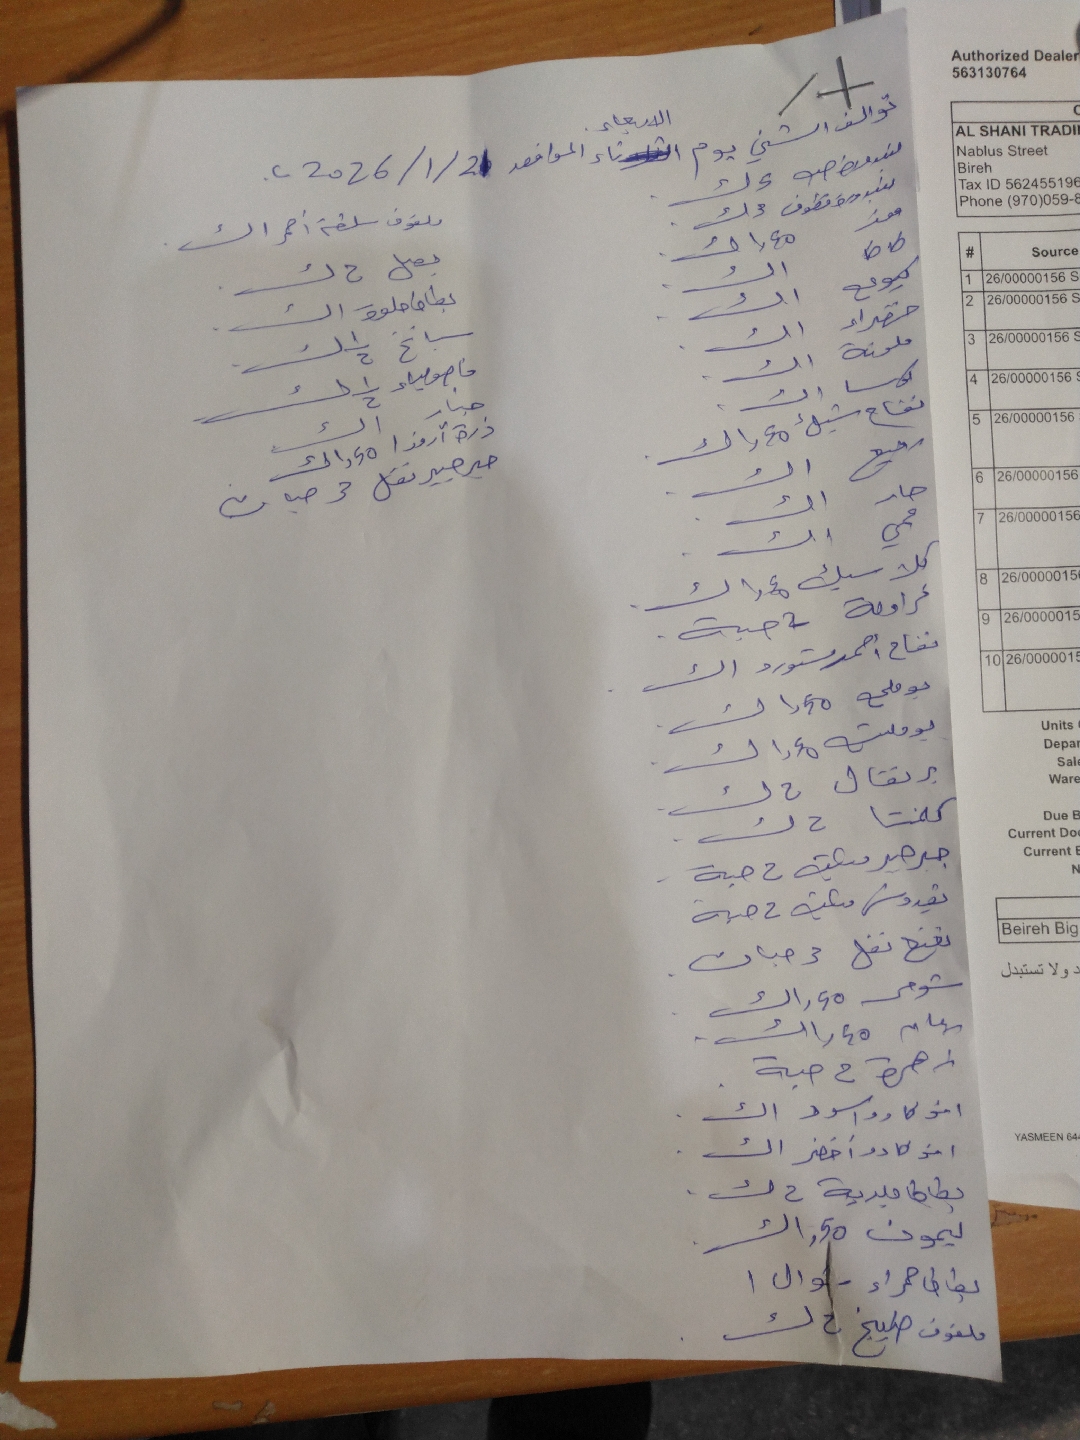 توالف الشني يوم الاربعاء الموافق 2026/1/21 م.
بندورة 5 ك
بندورة قطوف 3 ك
موز 1,50 ك
كاكا 1 ك
كيوي 1 ك
خضراء 1 ك
ملونة 1 ك
كوسا 1 ك
تفاح 1,50 ك
رفيع 1 ك
حار 1 ك
1 ك
كلاسيك 1,50 ك
فراولة 2 حبة
تفاح أحمر مستورد 1 ك
بوملي 1,50 ك
1,50 ك
برتقال 2 ك
كلمنتا 2 ك
جرجير 2 حبة
بقدونس 2 حبة
نعنع نفل 3 حبات
شومر 1,50 ك
1,50 ك
زهرة 2 حبة
افوكادو اسود 1 ك
افوكادو أخضر 1 ك
بطاطا بلدية 2 ك
ليمون 1,50 ك
بطاطا حمراء - شوال 1
ملفوف طبيخ 2 ك
ملفوف سلطة أحمر 1 ك
بصل 2 ك
بطاطا حلوة 1 ك
سبانخ 1/2 1 ك
فاصولياء 1/2 1 ك
خيار 1 ك
ذرة 1,50 ك
جرجير نفل 3 حبات
Authorized Dealer
563130764
AL SHANI TRADI
Nablus Street
Bireh
Tax ID 562455196
Phone (970)059-8
# Source
1 26/00000156 S
2 26/00000156 S
3 26/00000156 S
4 26/00000156 S
5 26/00000156
6 26/00000156
7 26/00000156
8 26/0000015
9 26/0000015
10 26/0000015
Units
Depar
Sale
Ware
Due B
Current Doc
Current B
Beireh Big
د ولا تستبدل
YASMEEN 644